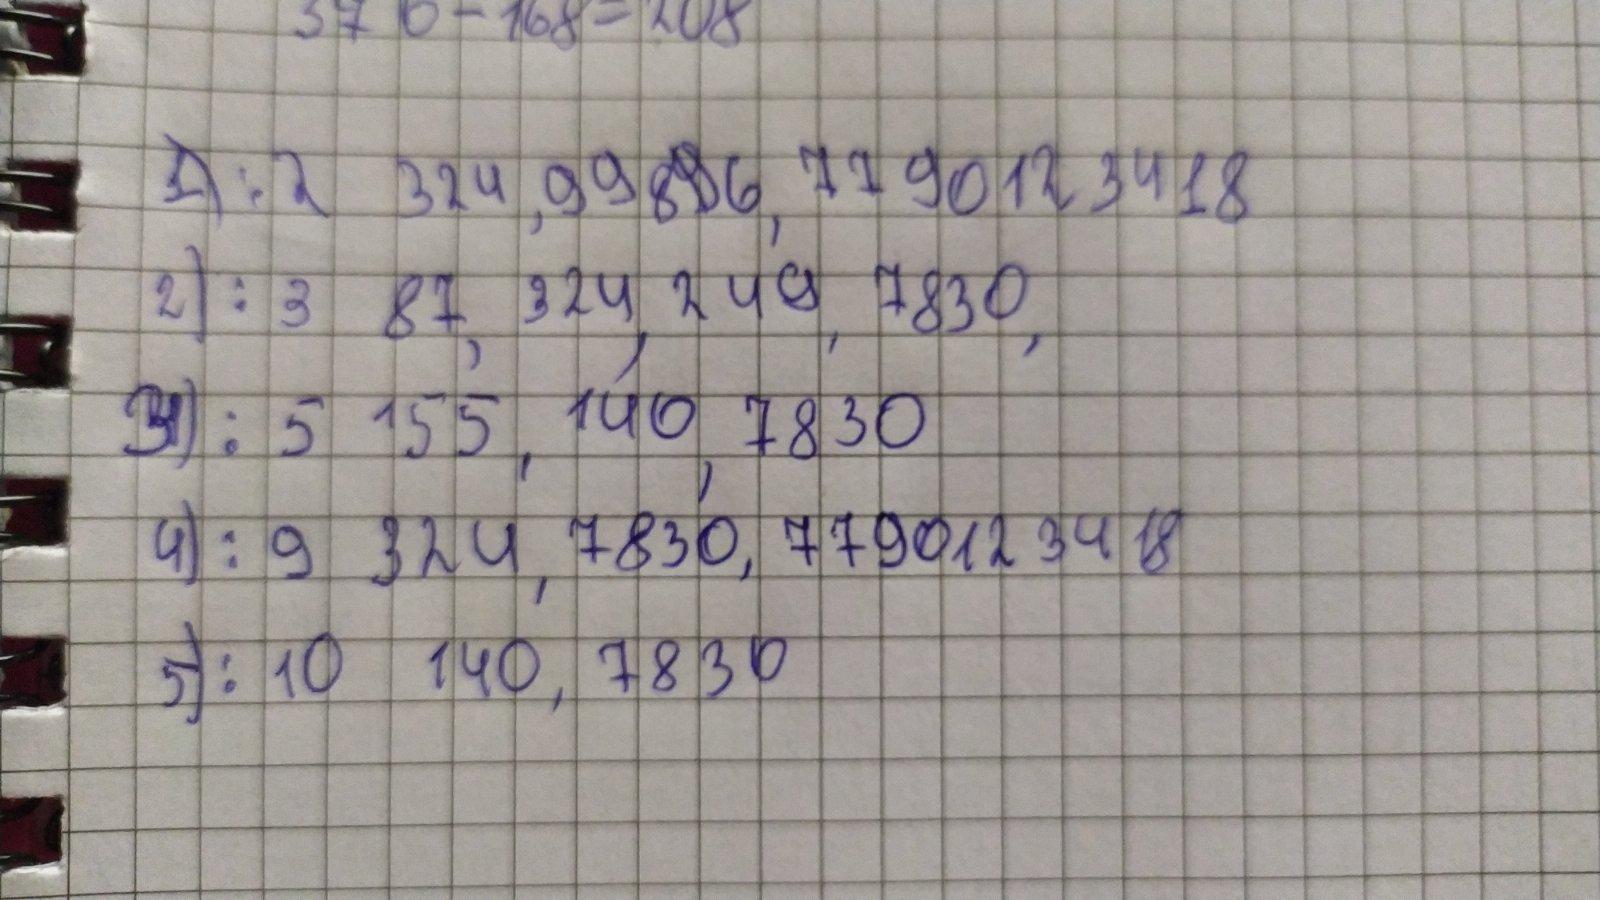 376-168=208
1) : 2 324, 99896, 7790123418
2) : 3 87, 324, 249, 7830,
3) : 5 155, 140, 7830
4) : 9 324, 7830, 7790123418
5) : 10 140, 7830